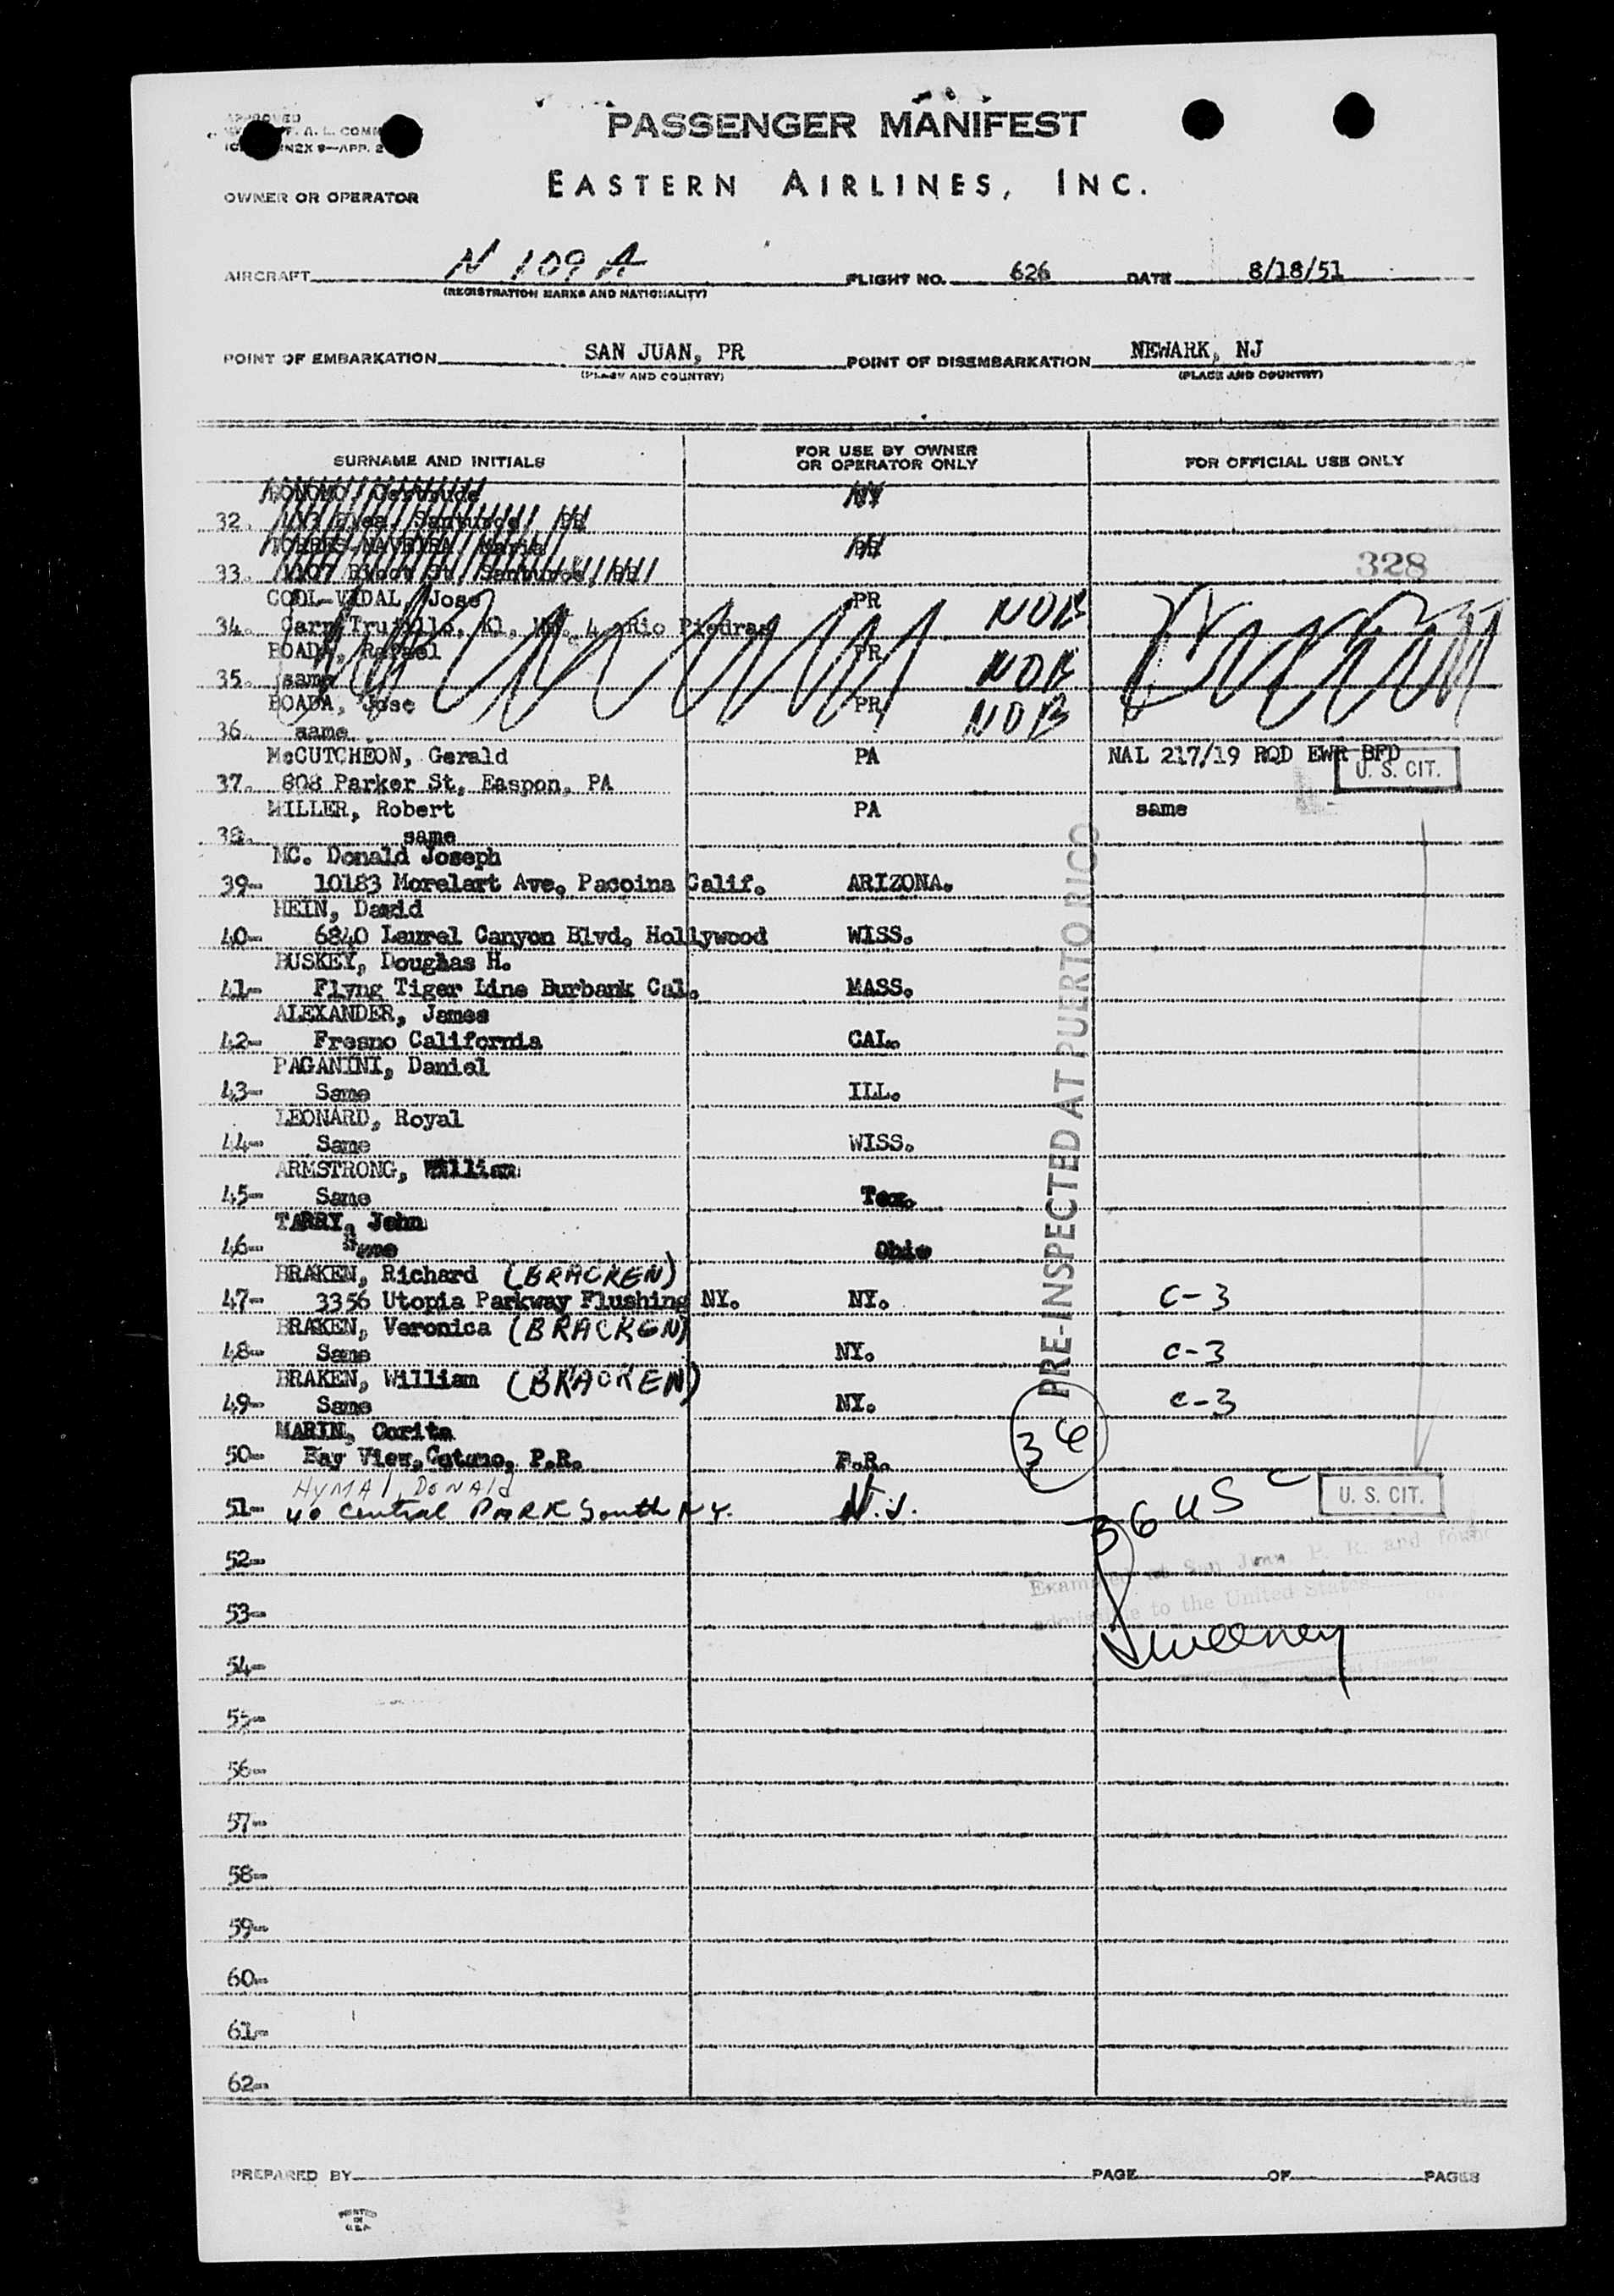 APPROVED
F. A. L. COMM
ANNEX 9—APP. 2
PASSENGER MANIFEST
EASTERN AIRLINES, INC.
OWNER OR OPERATOR
AIRCRAFT N 109 A FLIGHT NO. 626 DATE 8/18/51
(REGISTRATION MARKS AND NATIONALITY)
POINT OF EMBARKATION SAN JUAN, PR POINT OF DISEMBARKATION NEWARK, NJ
(PLACE AND COUNTRY) (PLACE AND COUNTRY)
SURNAME AND INITIALS FOR USE BY OWNER OR OPERATOR ONLY FOR OFFICIAL USE ONLY
Gertrude NY
32. Santurce, PR
TORRES-NAVEIRA, Maria PR
33. 1107 St, Santurce, PR 328
COOL-VIDAL, Jose PR NOB
34. Carr Trujillo, K1, 4, Rio Piedras
BOADA, Rafael PR NOB
35. same
BOADA, Jose PR NOB
36. same
McCUTCHEON, Gerald PA NAL 217/19 RQD EWR BFD
37. 808 Parker St, Easpon, PA U. S. CIT.
MILLER, Robert PA same
38. same
MC. Donald Joseph
39- 10183 Morelart Ave. Pacoina Calif. ARIZONA.
HEIN, David
40- 6840 Laurel Canyon Blvd. Hollywood WISS.
BUSKEY, Doughas H.
41- Flyng Tiger Line Burbank Cal. MASS.
ALEXANDER, James
42- Fresno California CAL.
PAGANINI, Daniel
43- Same ILL.
LEONARD, Royal
44- Same WISS.
ARMSTRONG, William
45- Same Tex.
TARRY, John
46- Same Ohio
BRAKEN, Richard (BRACKEN)
47- 3356 Utopia Parkway Flushing NY. NY. C-3
BRAKEN, Veronica (BRACKEN)
48- Same NY. C-3
BRAKEN, William (BRACKEN)
49- Same NY. C-3
MARIN, Corita
50- Bay View, Catano, P.R. P.R.
PRE-INSPECTED AT PUERTO RICO
36
HYMAN, DONALD
51- 40 Central PARK South NY. N.J. 36 USC U. S. CIT.
52-
Examined at San Juan, P. R. and found
53-
admissible to the United States
Sweeney
54-
Inspector
55-
56-
57-
58-
59-
60-
61-
62-
PREPARED BY PAGE OF PAGES
PRINTED
IN
U.S.A.